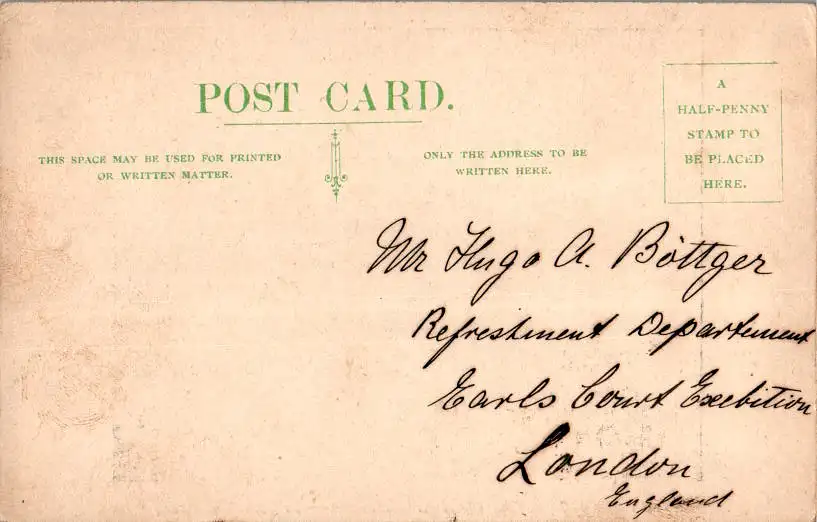 POST CARD.
THIS SPACE MAY BE USED FOR PRINTED
OR WRITTEN MATTER.
ONLY THE ADDRESS TO BE
WRITTEN HERE.
A
HALF-PENNY
STAMP TO
BE PLACED
HERE.
Mr Hugo A. Böttger
Refreshment Departement
Earls Court Exebition
London
England